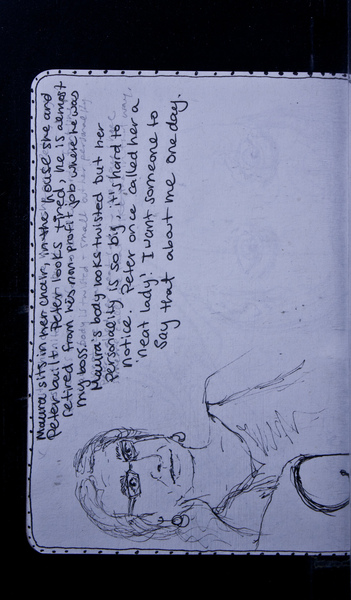 Maura sits in her chair, in the house she and
Peter built. Peter looks tired, he is almost
retired from his non-profit job where he was
my boss.
Maura's body looks twisted but her
personality is so big, it's hard to
notice. Peter once called her a
neat lady! I want someone to
say that about me one day.